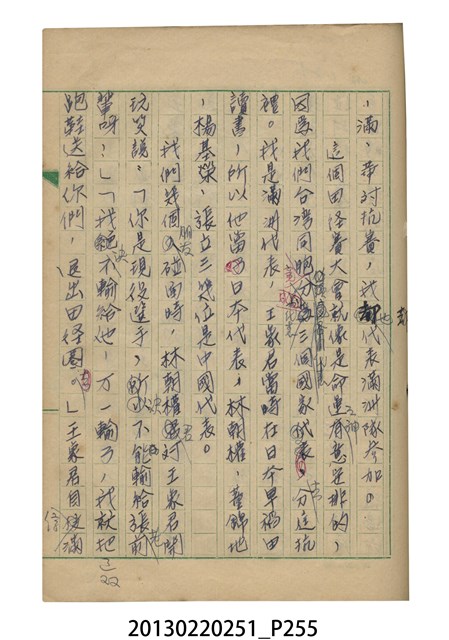 ，滿、華對抗賽，我都也代表滿洲隊參加。
這個田徑賽大會就像是命運之神有意安排的，
因為我們台灣同胞分為三個國家代表，分違抗
禮。我是滿洲代表，王家君當時在日本早稻田
讀書，所以他當了日本代表，林朝權、董錦地
、楊基榮、張立三幾位是中國代表。
我們幾個朋友碰面時，林朝權君對王家君開
玩笑說：「你是現役選手，所以決不能輸給張前
輩呀！」「我絕決不輸給他，万一輸了，我就把這双
跑鞋送給你們，退出田徑圈。」王家君自信滿
20130220251_P255